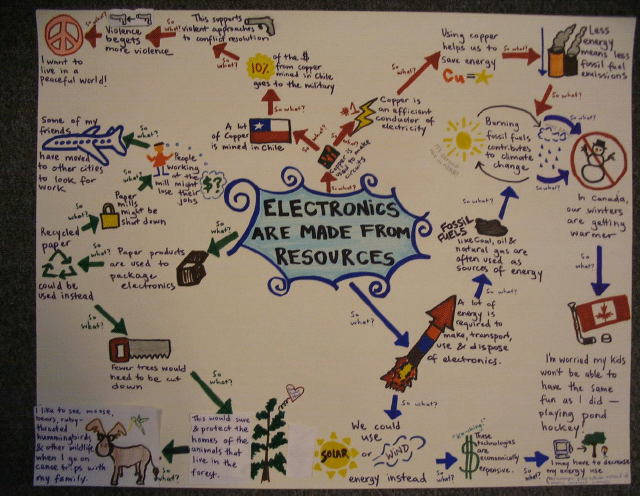 ELECTRONICS
ARE MADE FROM
RESOURCES
So what?
Copper is
used to make
circuitry
So what?
A lot
of Copper
is mined in Chile
So what?
10%
of the $
from copper
mined in Chile
goes to the military
So what?
This supports
violent approaches
to conflict resolutions
So what?
Violence
begets
more violence
So what?
I want to
live in a
peaceful world!
So what?
#1
Copper is
an efficient
conductor of
electricity
So what?
Using copper
helps us to
save energy
Cu =
So what?
Less
energy
means less
fossil fuel
emissions
So what?
Burning
fossil fuels
contributes
to climate
change
So what?
So what?
In Canada,
our winters
are getting
warmer
So what?
I'm worried my kids
won't be able to
have the same
fun as I did —
playing pond
hockey!
So what?
A lot of
energy is
required to
make, transport,
use & dispose
of electronics.
So what?
FOSSIL
FUELS
like Coal, oil &
natural gas are
often used as
sources of energy
So what?
So what?
We could
use
SOLAR
or
WIND
energy instead
So what?
These
technologies
are
economically
expensive.
So what?
I may have to decrease
my energy use
So what?
Paper products
are used to
package
electronics
So what?
Recycled
paper
could be
used instead
So what?
Paper
mills
might be
shut down
So what?
People
working
at the
mill might
lose their
jobs
$?
So what?
Some of my
friends
have moved
to other cities
to look for
work
So what?
Fewer trees would
need to be cut
down
So what?
This would save
& protect the
homes of the
animals that
live in the
forest.
So what?
I like to see moose,
bears, ruby-
throated
hummingbirds
& other wildlife
when I go on
canoe trips with
my family.